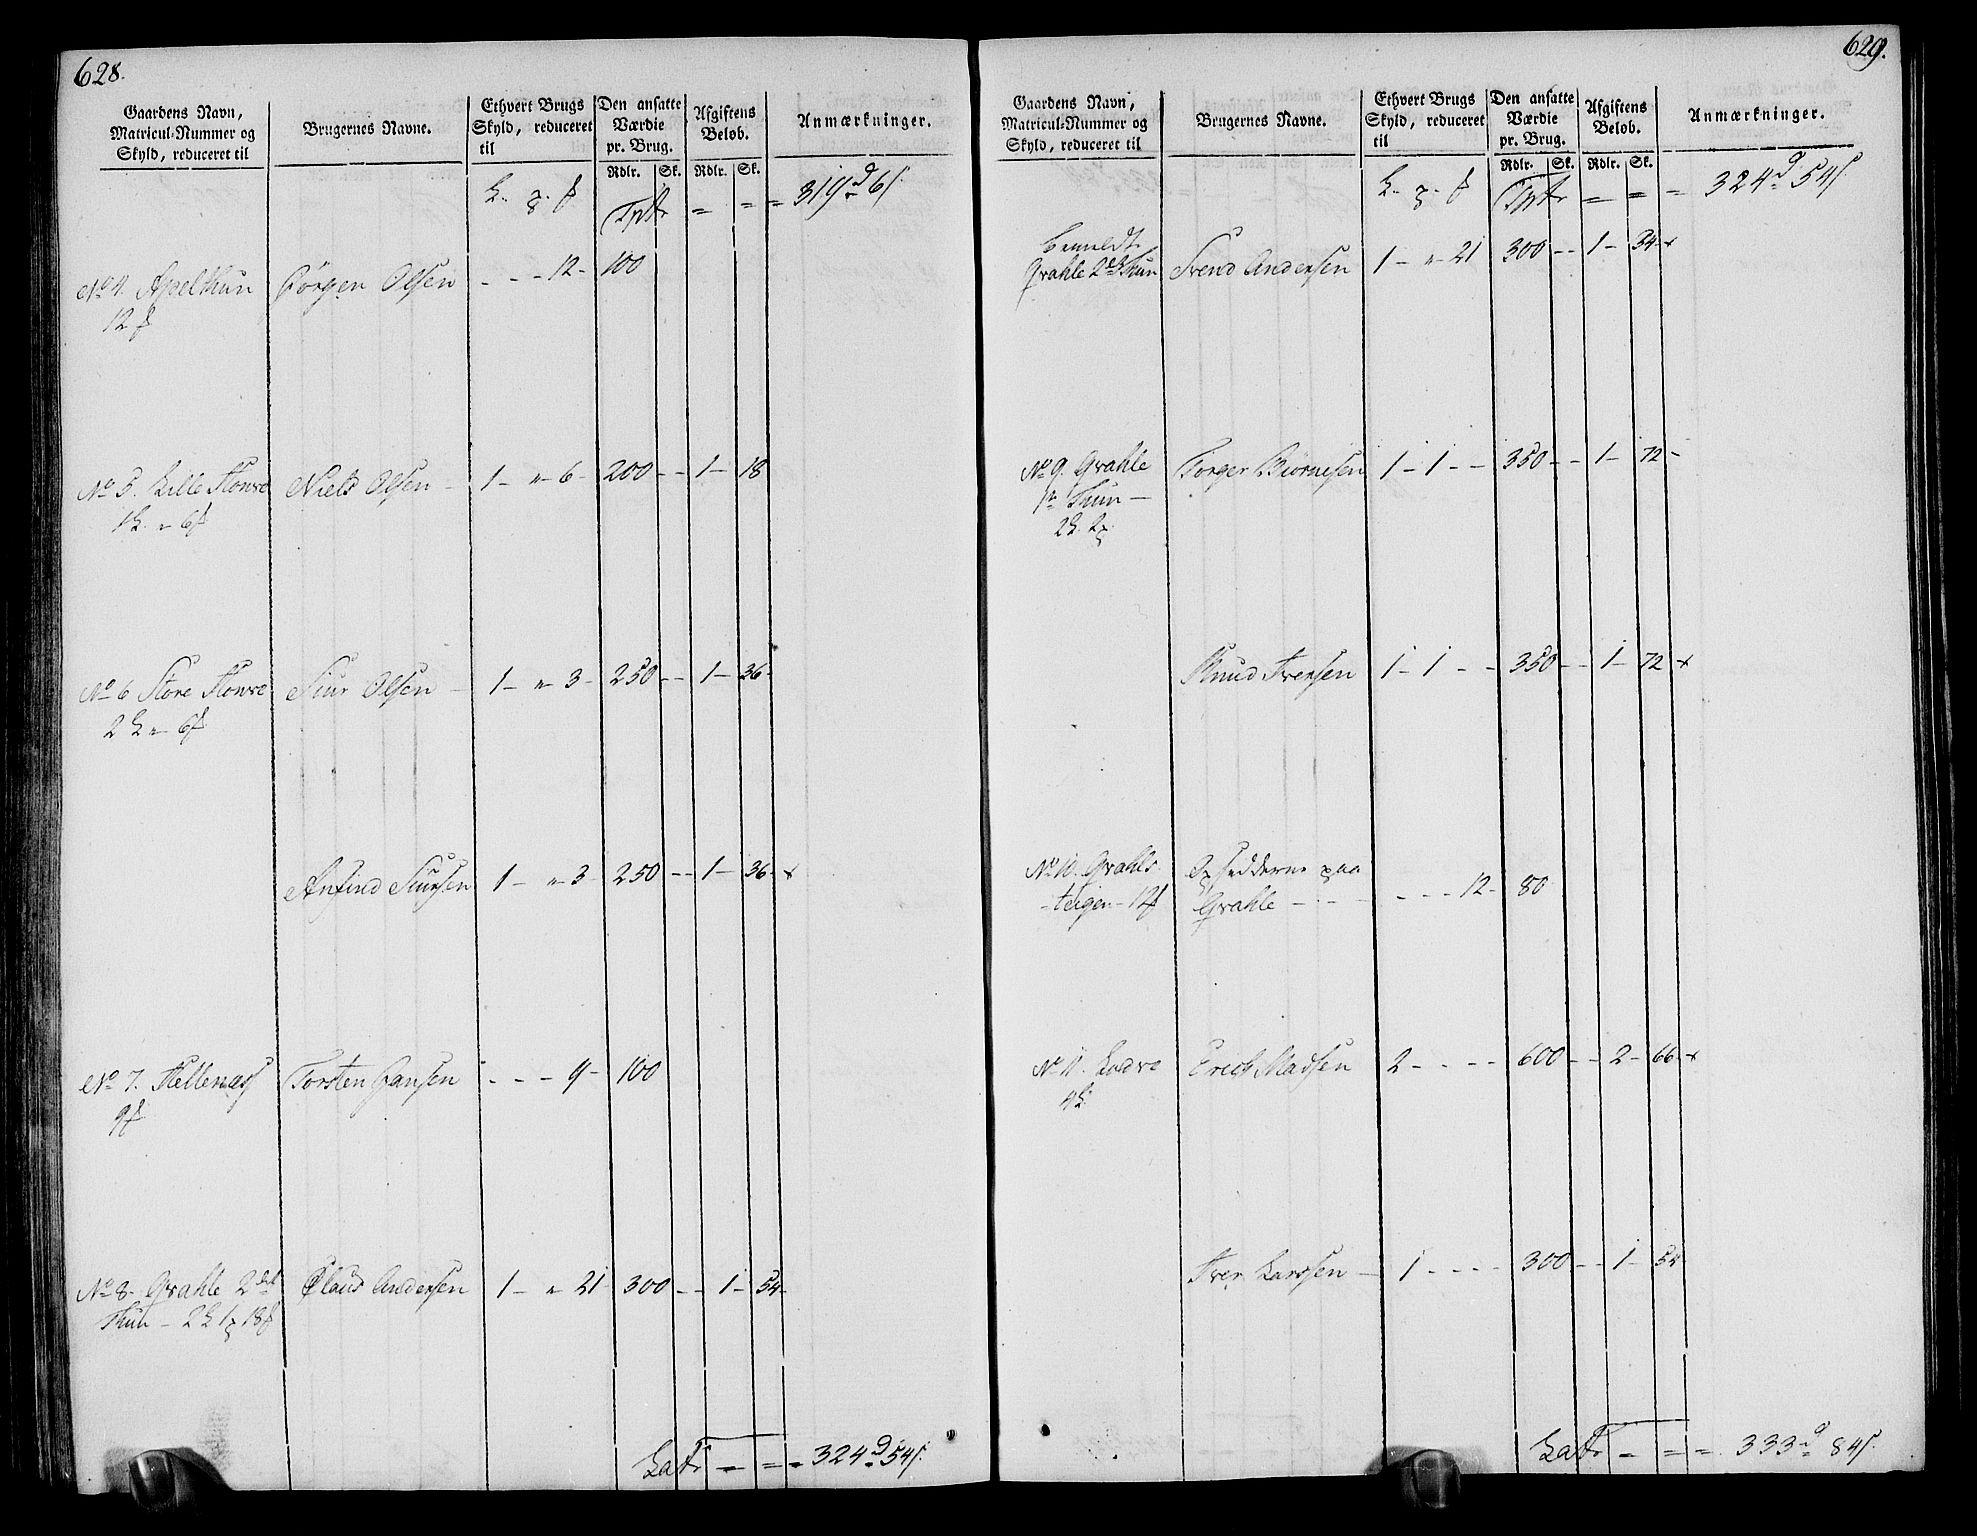 628.
Gaardens Navn, Matricul-Nummer og Skyld, reduceret til
Brugernes Navne.
Ethvert Brugs Skyld, reduceret til
Den ansatte Værdie pr. Brug.
Afgiftens Beløb.
Anmærkninger.
Rdlr. Sk. Rdlr. Sk.
Tptr = = = 319 d 6 s.
No 4. Apelthun Jørgen Olsen - - - 12 - 100
12
No 5. Lille Howre Niels Olsen - 1 - " 6 - 200 - - 1 - 18
1 " 6
No 6 Store Howre Siur Olsen - 1 - " 3 - 250 - - 1 - 36 -
2 " 6
Anfind Siursen 1 - " 3 - 250 - - 1 - 36 - x
No 7. Hellenæss Torsten Hansen - - - 9 - 100
9
No 8. Grahle 2det Claus Andersen 1 - " 21 - 300 - - 1 - 54 -
Thun - 2 1 18
Latr = = = 324 d 54 s.
629.
Gaardens Navn, Matricul-Nummer og Skyld, reduceret til
Brugernes Navne.
Ethvert Brugs Skyld, reduceret til
Den ansatte Værdie pr. Brug.
Afgiftens Beløb.
Anmærkninger.
Rdlr. Sk. Rdlr. Sk.
Tptr = = = 324 d 54 s
Bemeldt
Grahle 2det Thun Svend Andersen 1 - " 21 300 - - 1 - 54 x
No 9. Grahle Torger Biørnesen 1 - 1 - - 350 - - 1 - 72 -
1te Thun -
2 2
Knud Iversen 1 - 1 - - 350 - - 1 - 72 x
No 10. Grahls Opsidderne paa
- teigen - 12 Grahle - - - - - - 12 - 80
No 11. Erich Madsen 2 - - - - 600 - - 2 - 66 - x
4
Iver Larssen - 1 - - - - 300 - - 1 - 54
Latr = = = 333 d 84 s.